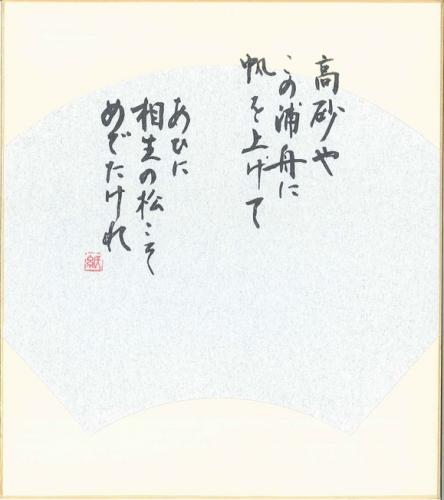 高砂や
この浦舟に
帆を上げて
あひに
相生の松こそ
めでたけれ